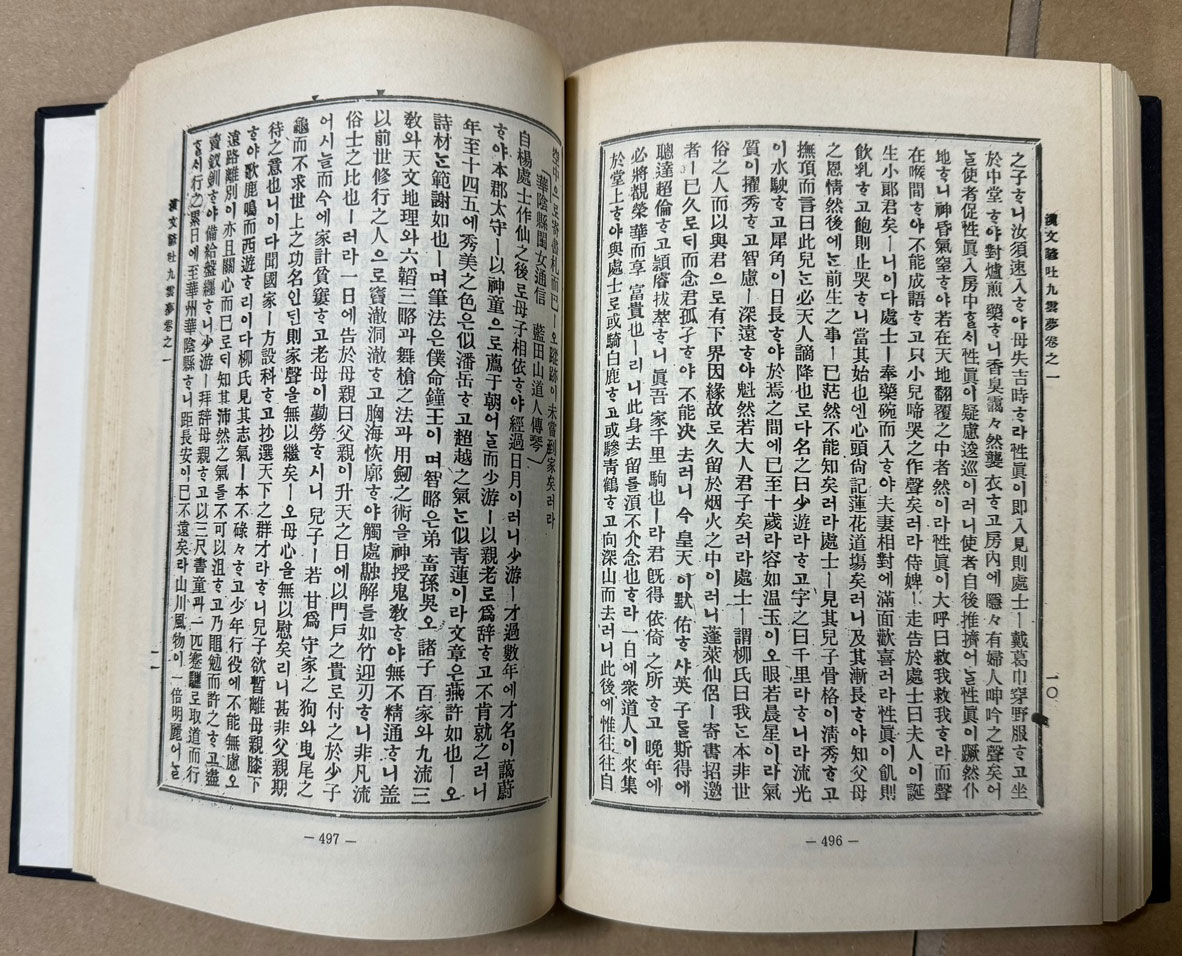 漢文諺吐九雲夢卷之一
一〇
之子ᄒᆞ니汝須速入ᄒᆞ야母失吉時ᄒᆞ라性眞이即入見則處士ㅣ戴葛巾穿野服ᄒᆞ고坐
於中堂ᄒᆞ야對爐煎藥ᄒᆞ니香臭靄々然襲衣ᄒᆞ고房內에隱々有婦人呻吟之聲矣어
ᄂᆞᆯ使者促性眞入房中ᄒᆞᆯᄉᆡ性眞이疑慮逡巡이러니使者自後推擠어ᄂᆞᆯ性眞이蹶然仆
地ᄒᆞ니神昏氣窒ᄒᆞ야若在天地翻覆之中者然이라性眞이大呼曰救我救我ᄒᆞ라而聲
在喉間ᄒᆞ야不能成語ᄒᆞ고只小兒啼哭之作聲矣러라侍婢ㅣ走告於處士曰夫人이誕
生小郞君矣ㅣ니이다處士ㅣ奉藥碗而入ᄒᆞ야夫妻相對에滿面歡喜러라性眞이飢則
飮乳ᄒᆞ고飽則止哭ᄒᆞ니當其始也엔心頭尙記蓮花道塲矣러니及其漸長ᄒᆞ야知父母
之恩情然後에ᄂᆞᆫ前生之事ㅣ已茫然不能知矣러라處士ㅣ見其兒子骨格이淸秀ᄒᆞ고
撫頂而言曰此兒ᄂᆞᆫ必天人謫降也로다名之曰少遊라ᄒᆞ고字之曰千里라ᄒᆞ니라流光
이水駛ᄒᆞ고犀角이日長ᄒᆞ야於焉之間에已至十歲라容如温玉이오眼若晨星이라氣
質이擢秀ᄒᆞ고智慮ㅣ深遠ᄒᆞ야魁然若大人君子矣러라處士ㅣ謂柳氏曰我ᄂᆞᆫ本非世
俗之人而以與君으로有下界因緣故로久留於烟火之中이러니蓬萊仙侶ㅣ寄書招邀
者ㅣ已久로ᄃᆡ而念君孤孑ᄒᆞ야不能决去러니今皇天이默佑ᄒᆞ샤英子를斯得에
聰達超倫ᄒᆞ고頴睿拔萃ᄒᆞ니眞吾家千里駒也ㅣ라君旣得依倚之所ᄒᆞ고晩年에
必將覩榮華而享富貴也ㅣ리니此身去留를湏不介念也ᄒᆞ라一日에衆道人이來集
於堂上ᄒᆞ야與處士로或騎白鹿ᄒᆞ고或驂靑鶴ᄒᆞ고向深山而去러니此後에惟往往自
－496－
空中으로寄書札而已ㅣ오蹤跡이未嘗到家矣러라
〔華陰縣閨女通信　藍田山道人傳琴〕
自楊處士作仙之後로母子相依ᄒᆞ야經過日月이러니少游ㅣ才過數年에才名이藹蔚
ᄒᆞ야本郡太守ㅣ以神童으로薦于朝어ᄂᆞᆯ而少游ㅣ以親老로爲辞ᄒᆞ고不肯就之러니
年至十四五에秀美之色은似潘岳ᄒᆞ고超越之氣ᄂᆞᆫ似靑蓮이라文章은燕許如也ㅣ오
詩材ᄂᆞᆫ範謝如也ㅣ며筆法은僕命鐘王이며智略은弟畜孫吳오諸子百家와九流三
敎와天文地理와六韜三略과舞槍之法과用劒之術을神授鬼敎ᄒᆞ야無不精通ᄒᆞ니盖
以前世修行之人으로竇澈洞澈ᄒᆞ고胸海恢廓ᄒᆞ야觸處融解를如竹迎刃ᄒᆞ니非凡流
俗士之比也ㅣ러라一日에告於母親曰父親이升天之日에以門戶之貴로付之於少子
어시늘而今에家計貧窶ᄒᆞ고老母이勤勞ᄒᆞ시니兒子ㅣ若甘爲守家之狗와曳尾之
龜而不求世上之功名인딘則家聲을無以繼矣ㅣ오母心을無以慰矣리니甚非父親期
待之意也ㅣ니이다聞國家ㅣ方設科ᄒᆞ고抄選天下之群才라ᄒᆞ니兒子欲暫離母親膝下
ᄒᆞ야歌鹿鳴而西遊ᄒᆞ리이다柳氏見其志氣ㅣ本不碌々ᄒᆞ고少年行役에不能無慮오
遠路離別이亦且關心而已로ᄃᆡ知其沛然之氣를不可以沮ᄒᆞ고乃黽勉而許之ᄒᆞ고盡
賣釵釧ᄒᆞ야備給盤纏ᄒᆞ니少游ㅣ拜辞母親ᄒᆞ고以三尺書童과一匹蹇驢로取道而行
ᄒᆞᆯᄉᆡ行之累日에至華州華陰縣ᄒᆞ니距長安이已不遠矣라山川風物이一倍明麗어ᄂᆞᆯ
漢文諺吐九雲夢卷之一
一一
－497－